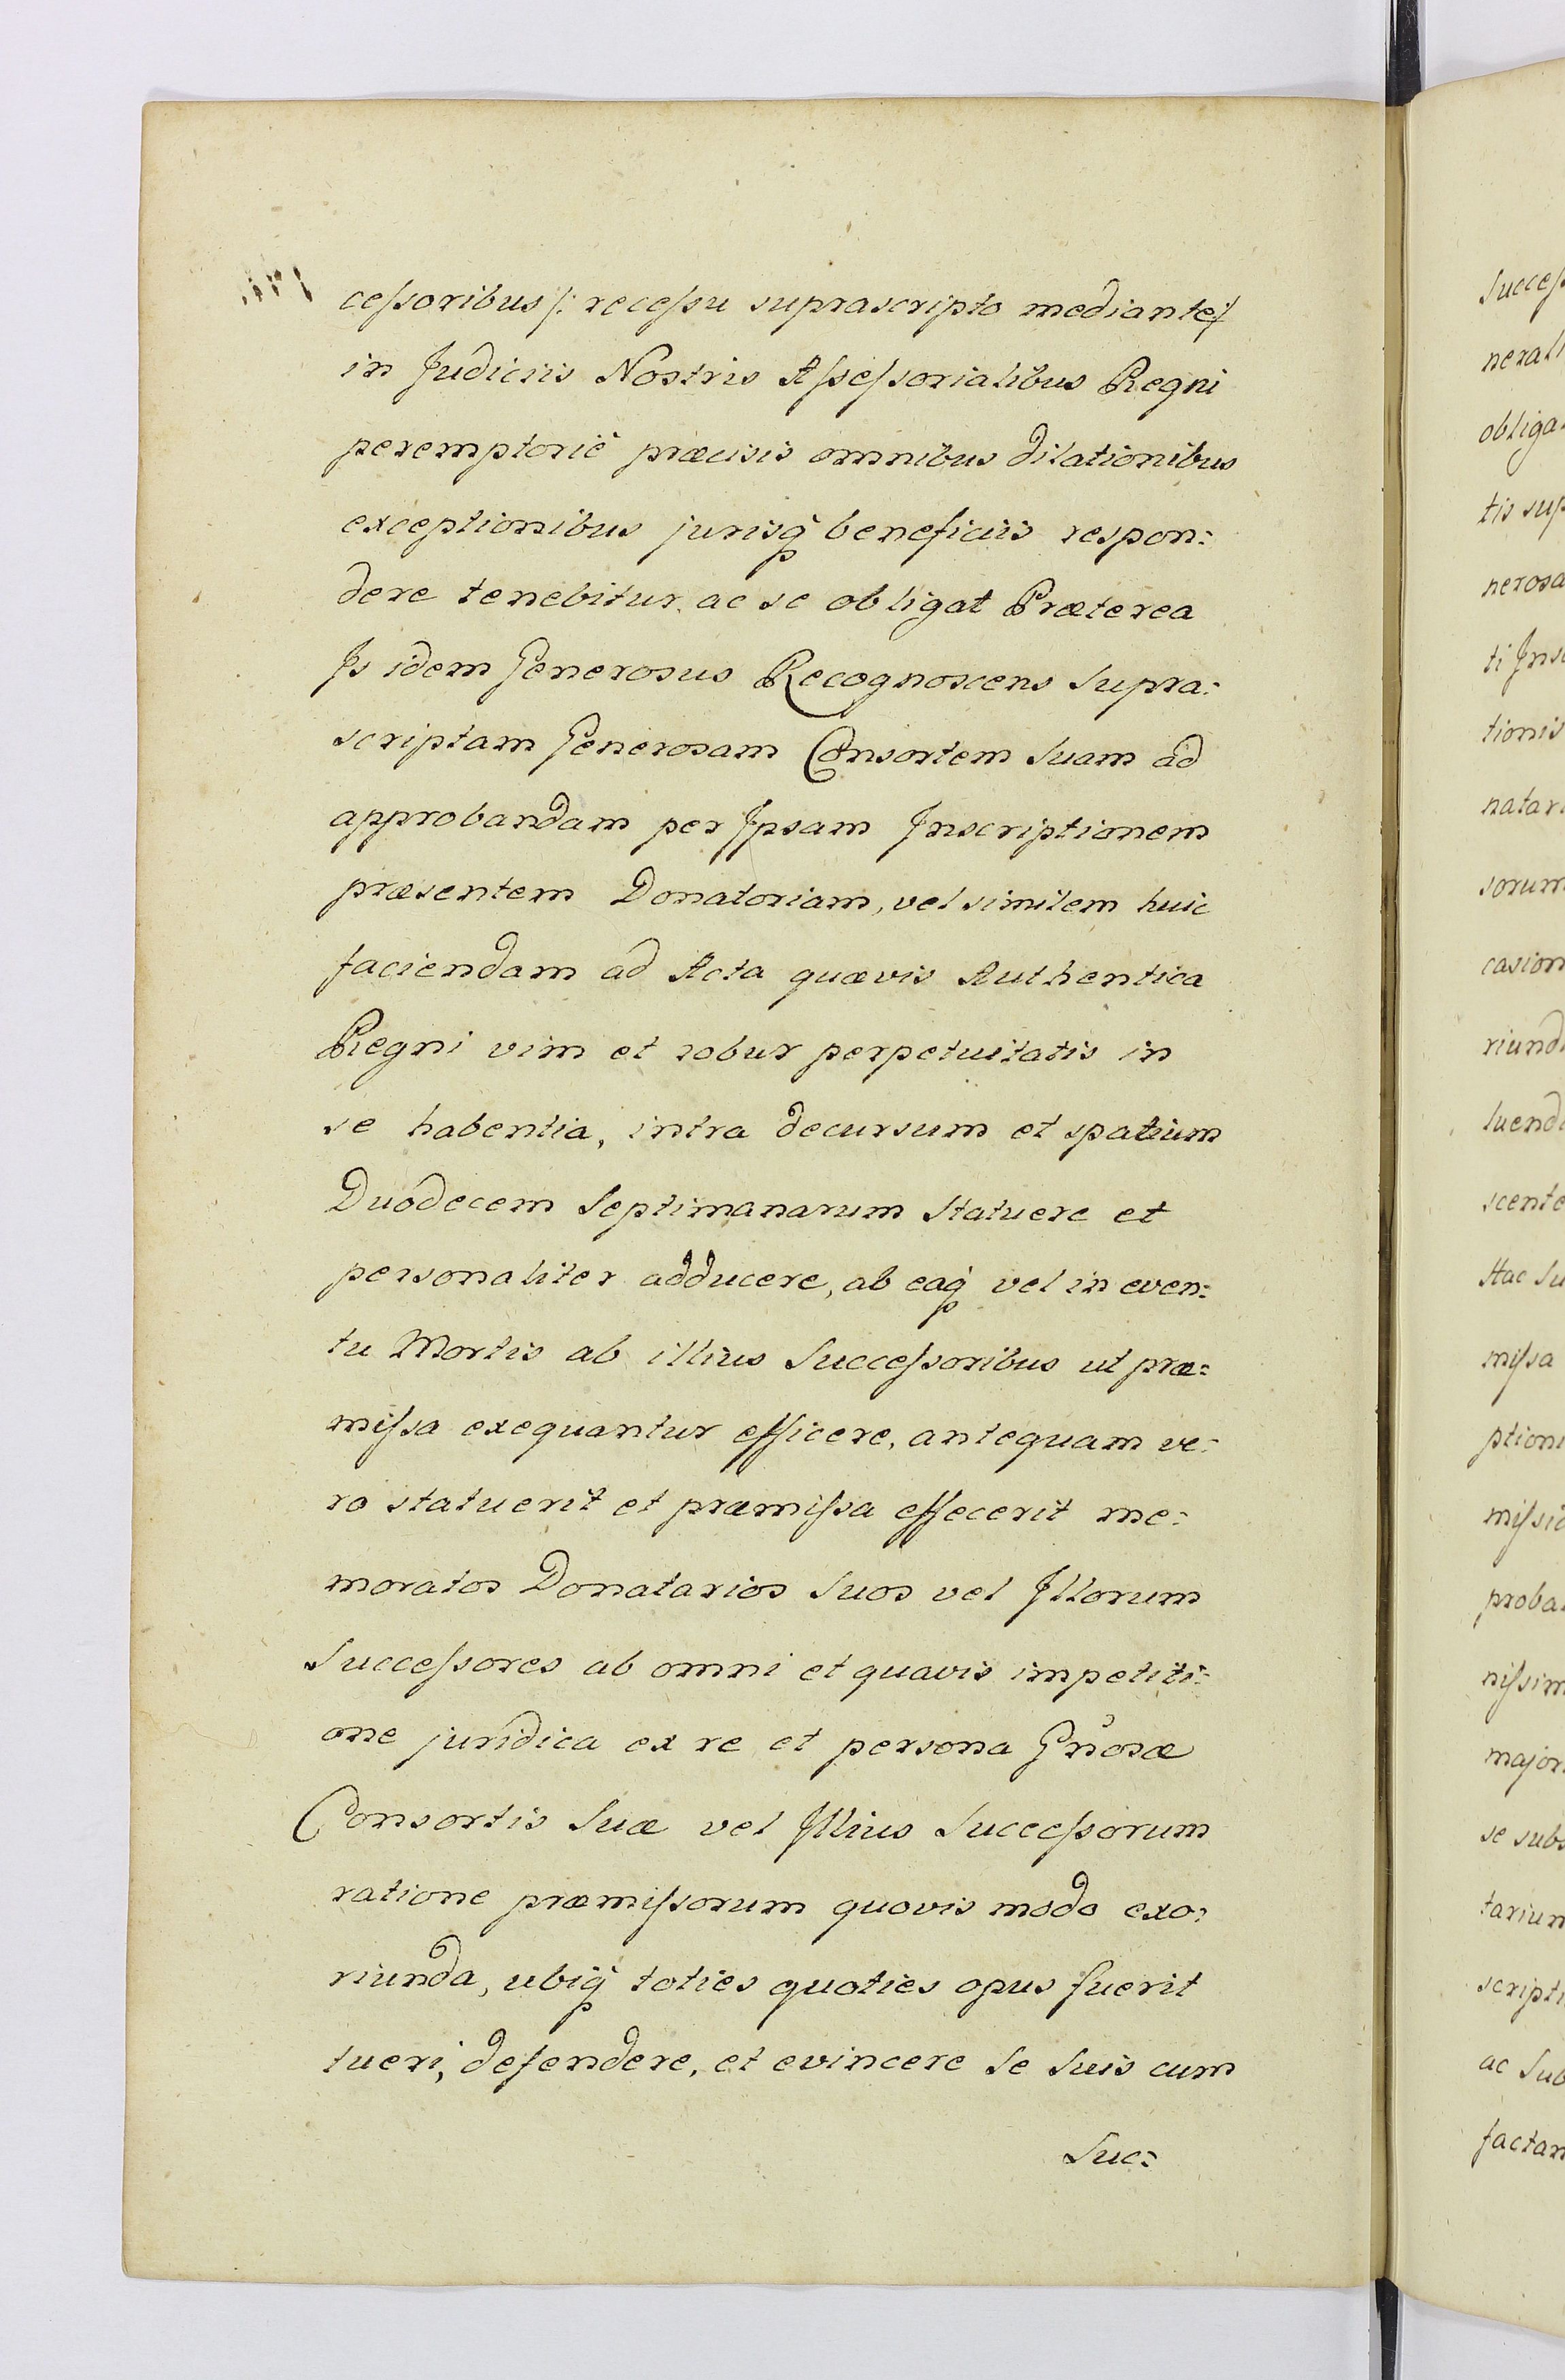 ceſsoribus /: receſsu suprascripto mediante /
in Judiciis Nostris Aſseſsorialibus Regni
peremptoriè præcisis omnibus dilationibus
exceptionibus jurisq beneficiis respon:
dere tenebitur. ac se obligat Præterea
Js idem Generosus Recognoscens Supra:
scriptam Generosam Consortem Suam ad
approbandam per Jpsam Jnscriptionem
præsentem Donatoriam, vel similem huic
faciendam ad Acta quævis Authentica
Regni vim et robur perpetuitatis in
se habentia, intra decursum et spatium
Duodecem Septimanarum Statuere et
personaliter adducere, ab eaq vel in even:
tu Mortis ab illius Succeſsoribus ut præ:
miſsa exequantur efficere, antequam ve:
ro statuerit et præmiſsa effecerit me:
moratos Donatarios Suos vel Jllorum
Succeſsores ab omni et quavis impetiti:
one juridica ex re et persona Gnosæ
Consortis Suæ vel Jllius Succeſsorum
ratione præmiſsorum quovis modo exo:
riunda, ubiq toties quoties opus fuerit
tueri, defendere, et evincere Se Suis cum
Suc:
Succeſs
nerali
obliga
tis sup
nerosa
ti Jns
tionis
natar
sorum
casion
riund
luend
scente
Hac Su
miſsa
ption
miſsi
proba
niſsim
major
se subs
tariun
scripti
ac Sub
factan